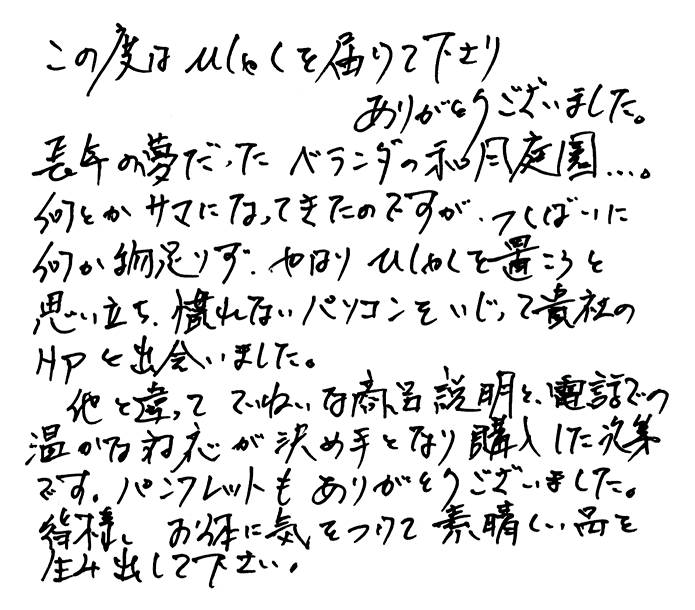 この度はひしゃくを届けて下さり
ありがとうございました。
長年の夢だった ベランダの和風庭園…。
何とかサマになってきたのですが、つくばいに
何か物足りず、やはりひしゃくを置こうと
思い立ち、慣れないパソコンをいじって貴社の
HPと出会いました。
他と違って ていねいな商品説明と、電話での
温かな対応が決め手となり購入した次第
です。パンフレットもありがとうございました。
皆様、お体に気をつけて素晴しい品を
生み出して下さい。